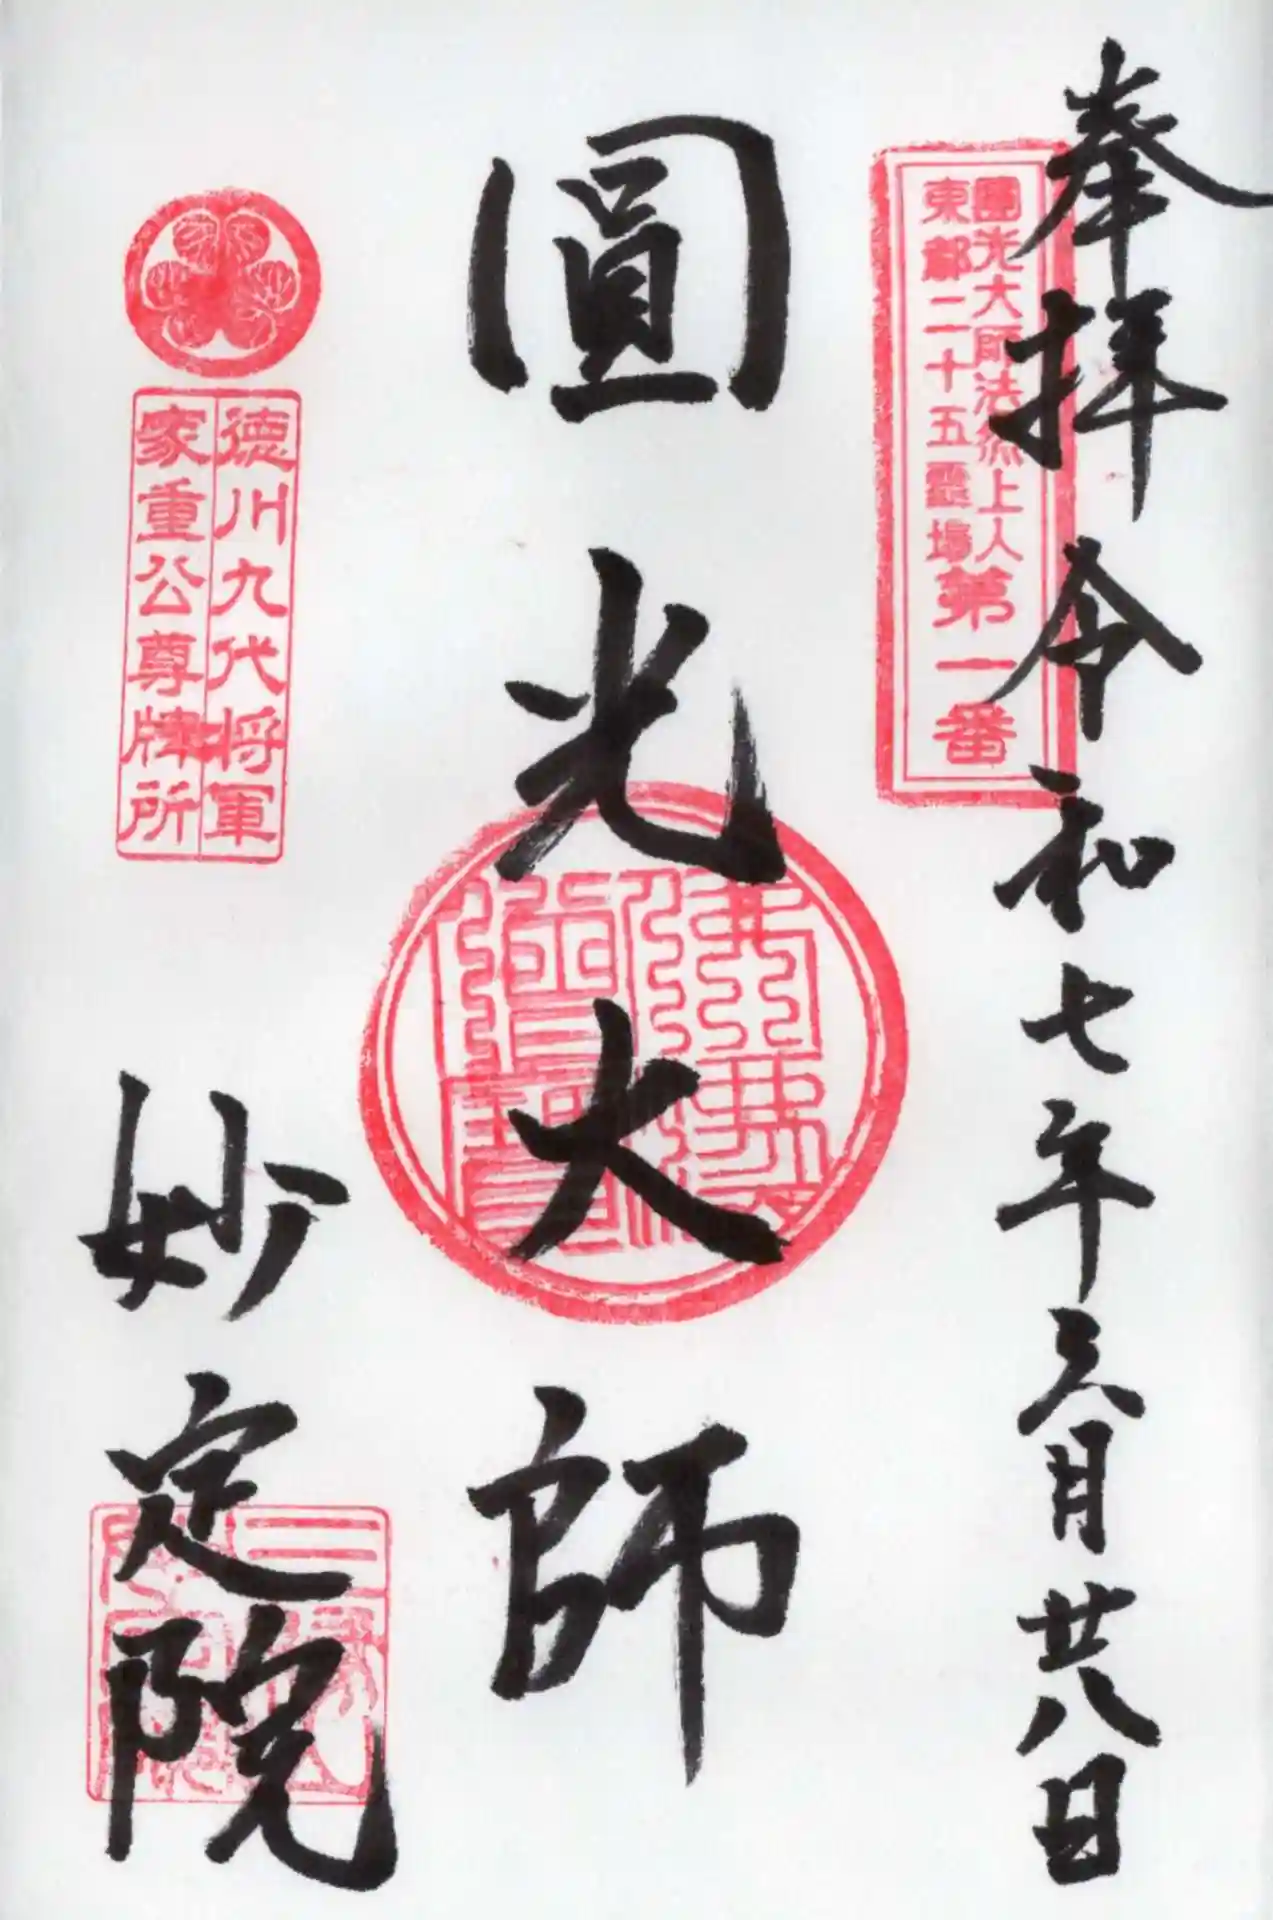 奉拝 令和七年三月廿八日
圓光大師法然上人
東都二十五霊場
第一番
圓光大師
佛法僧寶
徳川九代将軍
家重公尊牌所
妙定院